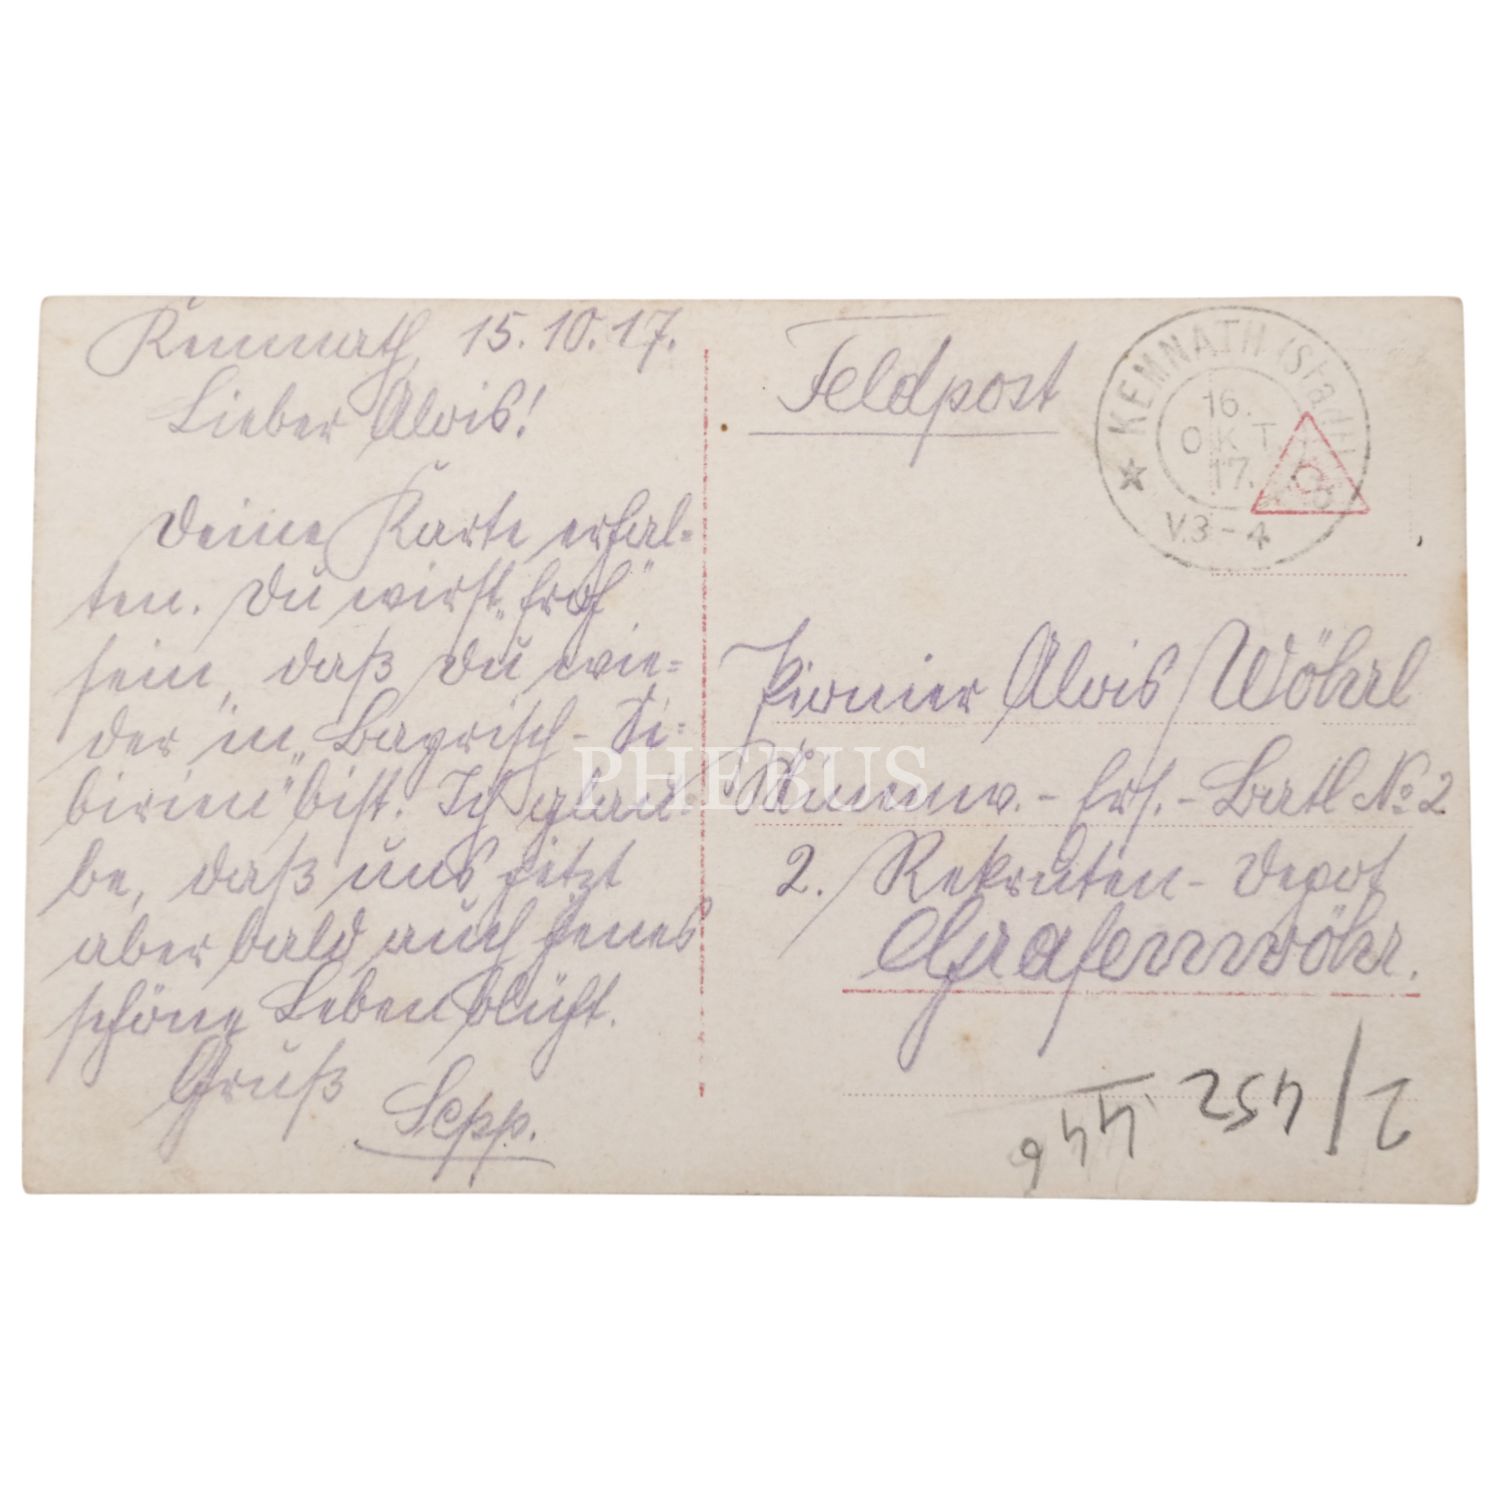 Kemnath, 15.10.17.
Lieber Alois!
Deine Karte erhal-
ten. Du wirst „froh"
sein, daß Du wie-
der in „Bayrisch-Si-
birien" bist. Ich glau-
be, daß uns jetzt
aber bald auch jenes
schöne Leben blüht.
Gruß
Sepp.
Feldpost
KEMNATH (Stadt)
16.
OKT.
17.
V.3-4
Pionier Alois Wöhrl
Ers.-Batl № 2
2. Rekruten-Depot
Grafenwöhr.
2/452
PHEBUS